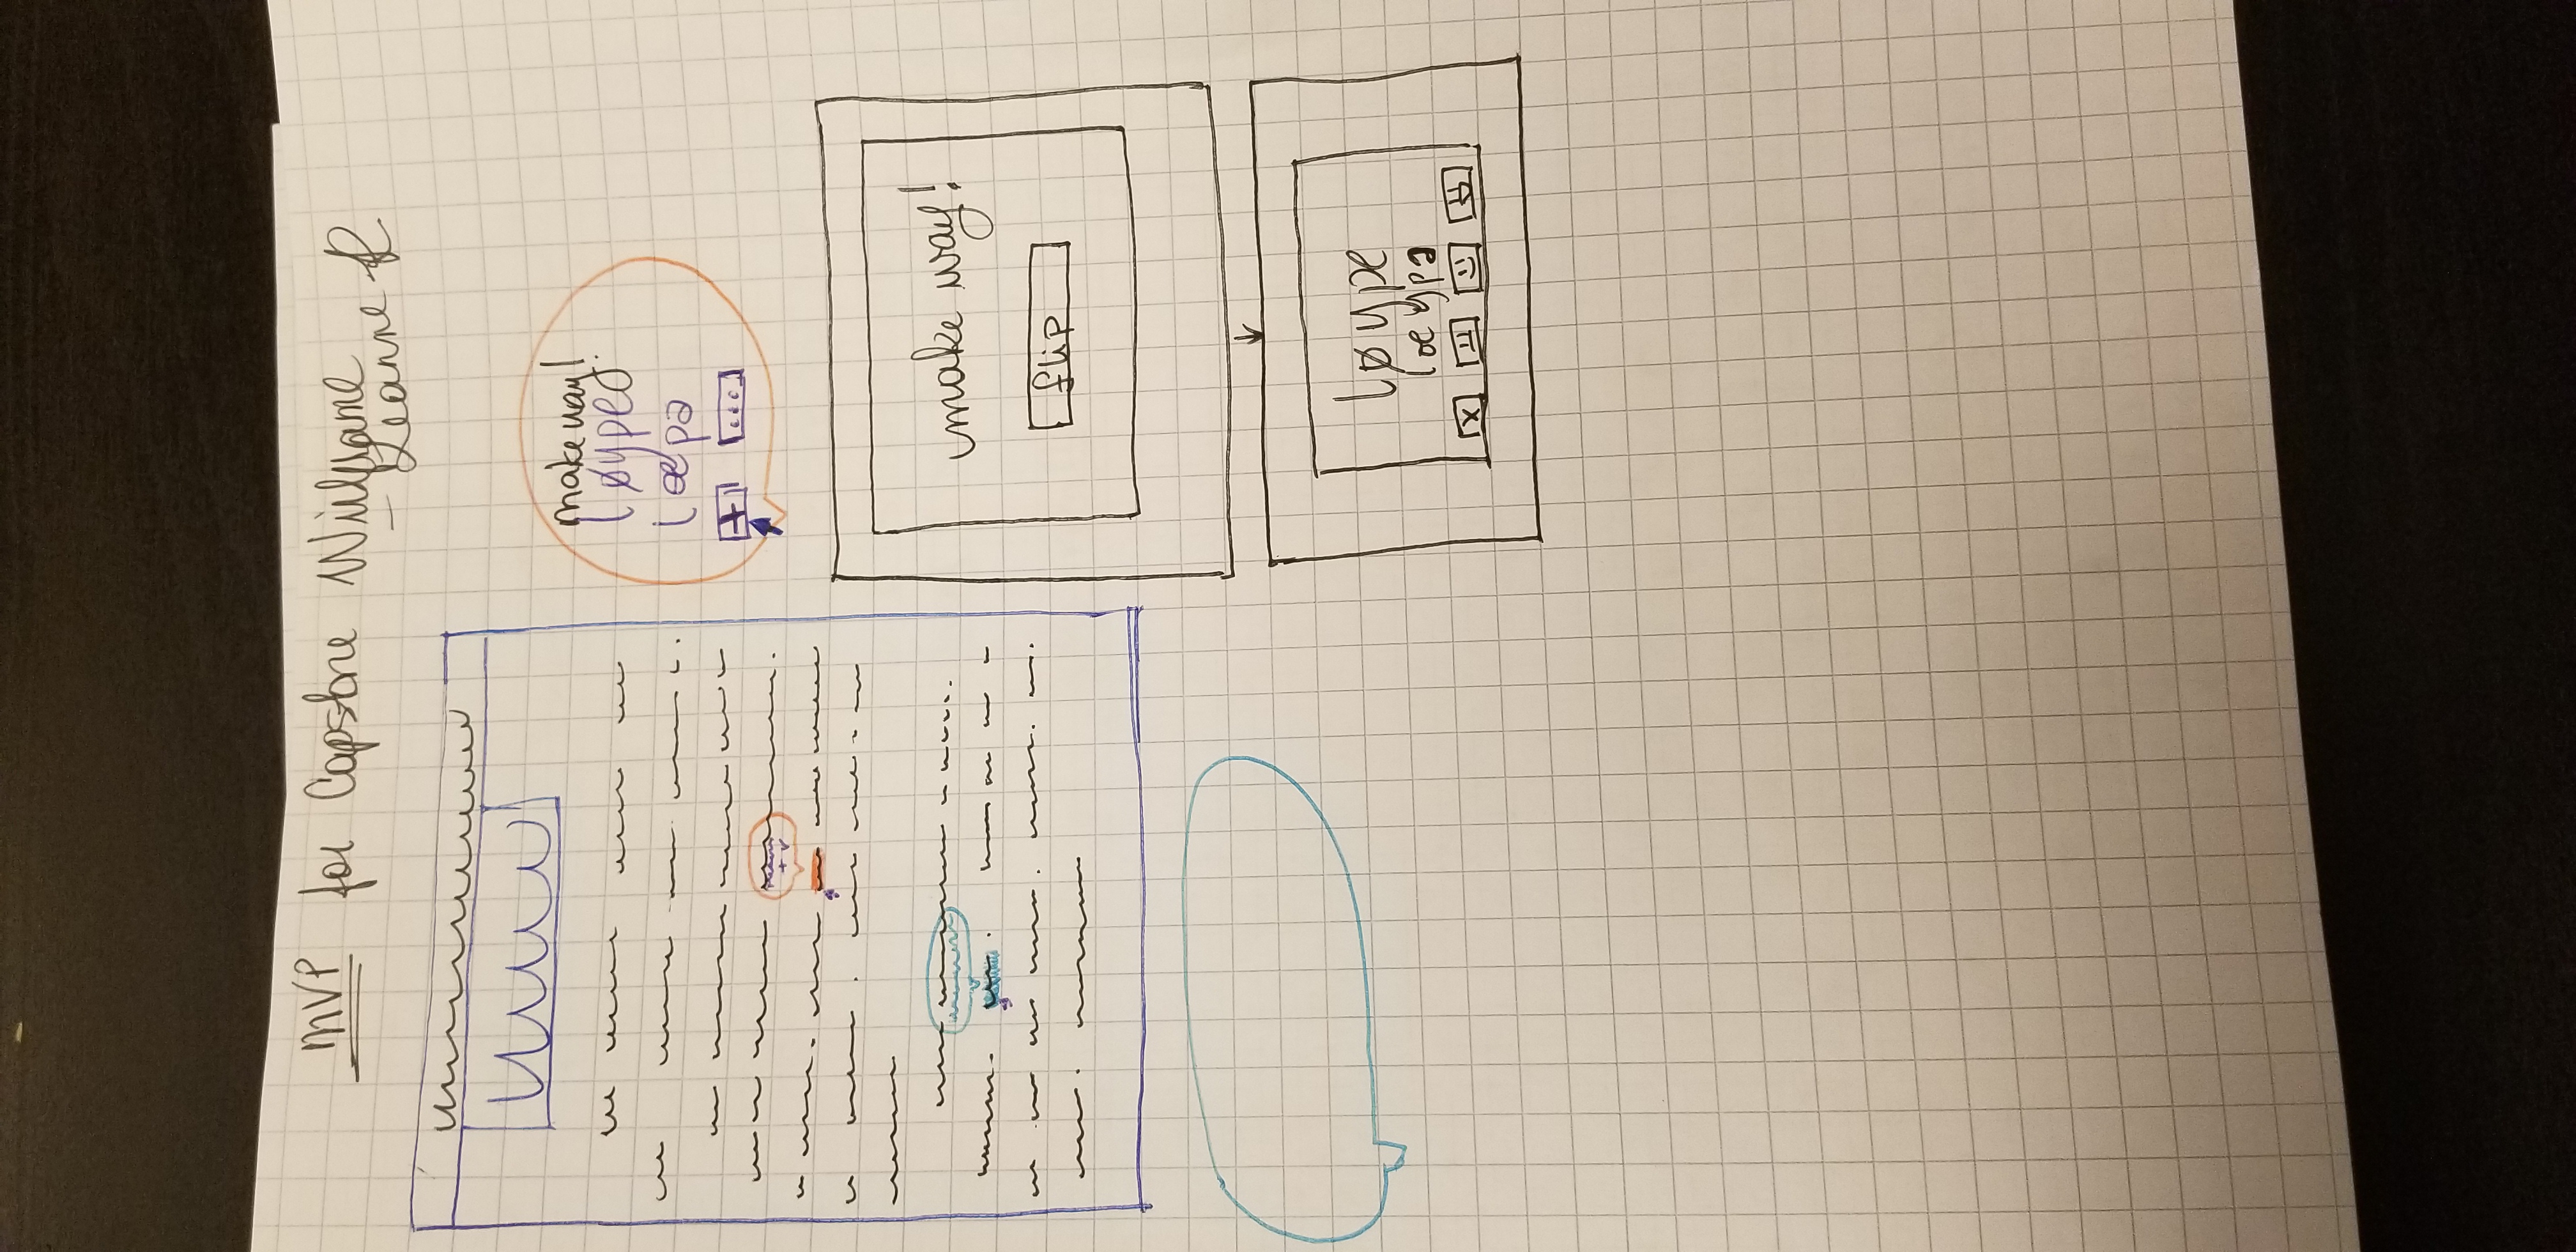 MVP for Capstone Wireframe
- Leanne R
make way!
løype
lœpa
+ ...
make way!
flip
løype
lœypa
x